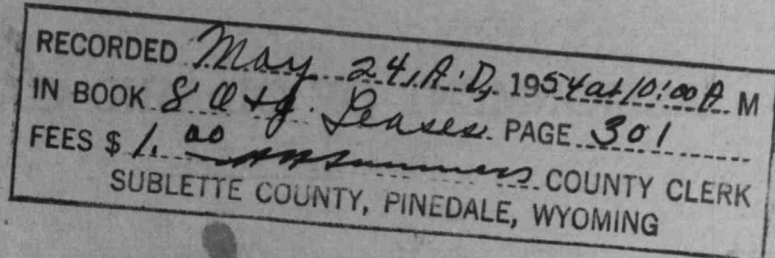 RECORDED May 24, A.D, 1954 at 10:00 A. M
IN BOOK 8 O & G. Leases PAGE 301
FEES $ 1.00 COUNTY CLERK
SUBLETTE COUNTY, PINEDALE, WYOMING